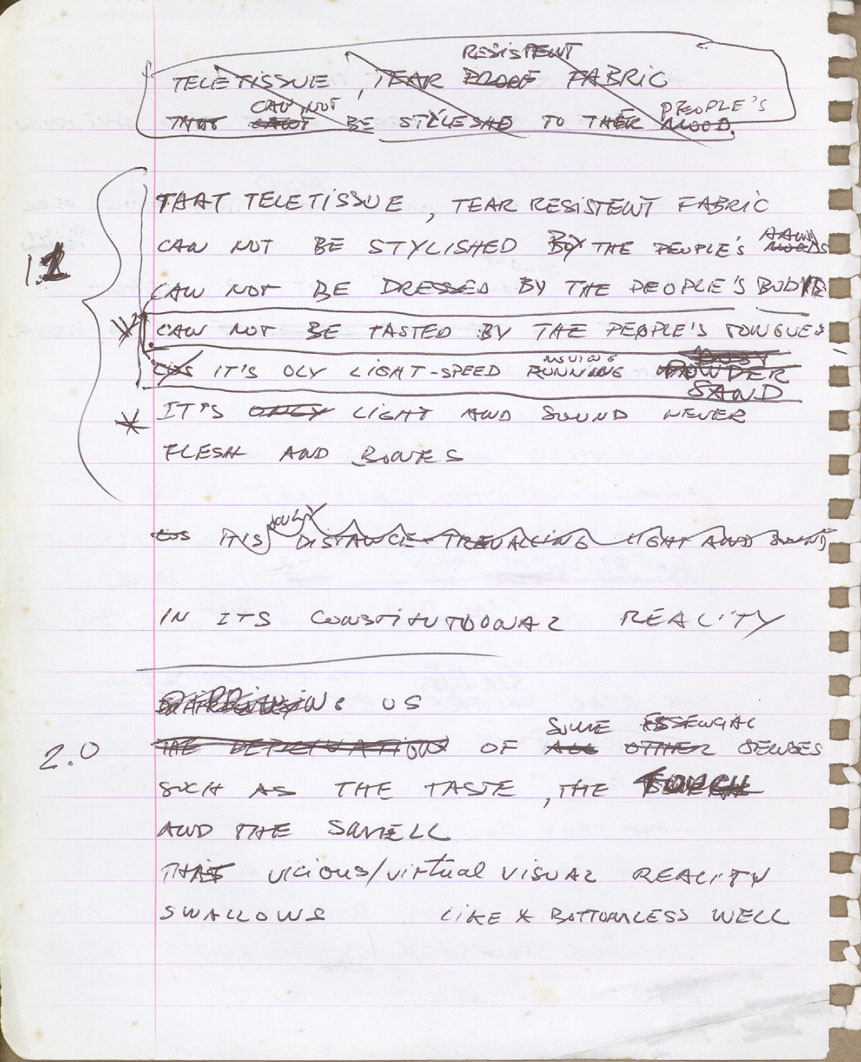 RESISTENT
TELETISSUE, TEAR PROOF FABRIC
CAN NOT PEOPLE'S
THAT CANT BE STYLESHD TO THEIR MOOD.
THAT TELETISSUE, TEAR RESISTENT FABRIC
1.1 CAN NOT BE STYLISHED BY THE PEOPLE'S MOODS
CAN NOT BE DRESSED BY THE PEOPLE'S BODYS
* CAN NOT BE TASTED BY THE PEOPLE'S TONGUES
DUSY
MOVING
IT'S OLY LIGHT-SPEED RUNNING POWDER
SAND
* IT'S ONLY LIGHT AND SOUND NEVER
FLESH AND BONES
ITS DISTANCE TREVALLING LIGHT AND SOUND
IN ITS CONSTITUTOONAL REALITY
DEPRIVING US
SOME ESSENGIAL
2.0 THE DEPRIVATION OF ALL OTHER SENSES
SUCH AS THE TASTE, THE TOUCH
AND THE SMELL
THAT vicious/virtual VISUAL REALITY
SWALLOWS LIKE A BOTTOMLESS WELL